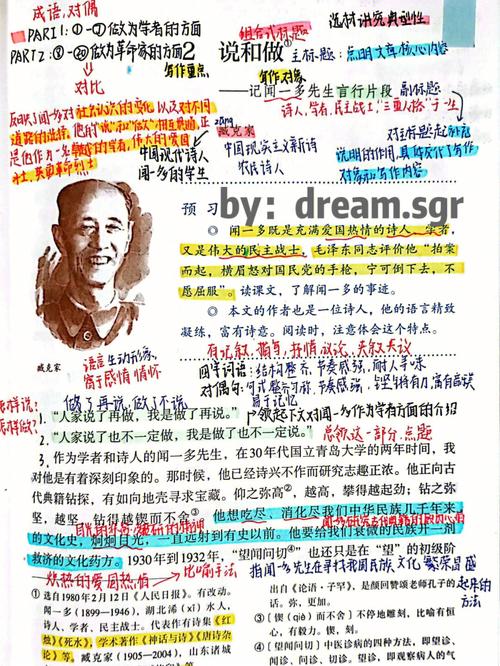 成语,对偶
PART1:①-⑦做为学者的方面
PART2:⑧-⑳做为革命家的方面
对比
写作重点
组合式标题
选材讲究典型性
2 说和做①
主标题:点明文章核心内容
写作对象
——记闻一多先生言行片段
副标题
诗人,学者,民主战士,“三重人格”于一生
臧克家
中国现代诗人
闻一多的学生
中国现实主义新诗
农民诗人
对主标题起补充
说明的作用,具体交代了写作
对象和写作内容
by: dream.sgr
预习
◎ 闻一多既是充满爱国热情的诗人、学者,
又是伟大的民主战士,毛泽东同志评价他“拍案
而起,横眉怒对国民党的手枪,宁可倒下去,不
愿屈服”。读课文,了解闻一多的事迹。
◎ 本文的作者也是一位诗人,他的语言精致
凝练,富有诗意。阅读时,注意体会这个特点。
臧克家
语言生动形象,
富于感情 情怀
有记叙,描写,抒情,议论,夹叙夹议
四字词语:结构整齐,节奏感强,耐人寻味
对偶句:句式整齐,节奏感强
易于记忆
做了再说,做了不说
怎样说?
怎样做?
1. “人家说了再做,我是做了再说。”
领起下文对闻一多作为学者方面的介绍
2. “人家说了也不一定做,我是做了也不一定说。”
总领这一部分,点题
3. 作为学者和诗人的闻一多先生,在30年代国立青岛大学的两年时间,我
对他是有着深刻印象的。那时候,他已经诗兴不作而研究志趣正浓。他正向古
代典籍钻探,有如向地壳寻求宝藏。仰之弥高②,越高,攀得越起劲;钻之弥
坚,越坚,钻得越锲而不舍③。他想吃尽、消化尽我们中华民族几千年来
的文化史,炯炯目光,一直远射到有史以前。他要给我们衰微的民族开一剂
救济的文化药方。1930年到1932年,“望闻问切④”也还只是在“望”的初级阶
炽热的爱国热情
比喻手法
指闻一多先生在寻找我国民族文化繁荣昌盛
起来的
方法
① 选自1980年2月12日《人民日报》。有改动。
闻一多(1899—1946),湖北浠(xī)水人,
诗人、学者、民主战士。代表作有诗集《红
烛》《死水》,学术著作《神话与诗》《唐诗杂
论》等。臧克家(1905—2004),山东诸城
自《论语·子罕》,是颜回赞颂老师孔子的
话。弥,更加。
③〔锲(qiè)而不舍〕不停地雕刻,比喻有恒
心,有毅力。锲,刻。
④〔望闻问切〕中医诊病的四种方法,即望诊、
闻诊、问诊、切诊。望诊,即观察病人的气